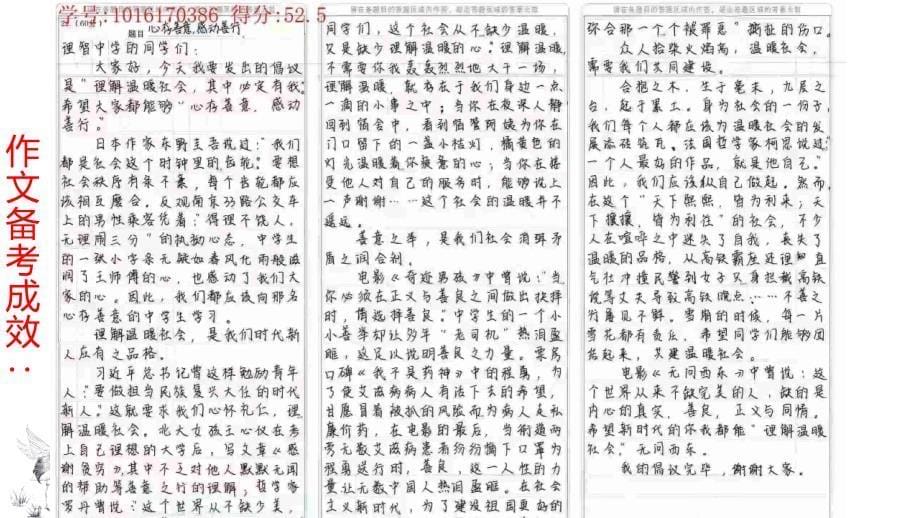 学号:1016170386 得分:52.5
请在各题目的答题区域内作答,超出答题区域的答案无效
请在各题目的答题区域内作答,超出答题区域的答案无效
作文备考成效:
22.(60分)
题目 心存善意,感动善行
理智中学的同学们:
大家好,今天我要发出的倡议
是“理解温暖社会,其中必定有我”
希望大家都能够“心存善意,感动
善行。”
日本作家东野圭吾说过:“我们
都是社会这个时钟里的齿轮。”要想
社会秩序有条不紊,每个齿轮都应
该相互磨合。反观南京33路公交车
上的男性乘客凭着“得理不饶人,
无理闹三分”的执拗心态,中学生
的一张小字条无疑如春风化雨般滋
润了王师傅的心,也感动了我们大
家的心。因此,我们都应该向那名
心存善意的中学生学习。
理解温暖社会,是我们时代新
人应有之品格。
习近平总书记曾这样勉励青年
人:“要做担当民族复兴大任的时代
新人。”这就要求我们心怀礼仁,理
解温暖社会。北大女孩王心仪在考
上自己理想的大学后,写文章《感
谢贫穷》,其中不乏对他人默默无闻
的帮助等善意之行的理解;哲学家
罗丹曾说:“这个世界从不缺少美,
们,这个社会从不缺少温暖,
又是缺少理解温暖的心。”理解温暖,
不需要你我轰轰烈烈地大干一场,
理解温暖,就存在于我们身边一点
一滴的小事之中:当你在夜深人静
回到宿舍中,看到宿管阿姨为你在
门口留下的一盏小桔灯,橘黄色的
灯光温暖着你疲惫的心;当你在接
受他人对自己的服务时,能够说上
一声谢谢……这个社会的温暖并不
遥远。
善意之举,是我们社会消弭矛
盾之间会别。
电影《奇迹男孩》中曾说:“当
你必须在正义与善良之间做出抉择
时,请选择善良。”中学生的一个小
小善举却让多年“老司机”热泪盈
眶,这足以说明善良之力量。票房
口碑《我不是药神》中的程勇,为
了使艾滋病病人有活下去的希望,
甘愿冒着被抓的风险而为病人走私
廉价药,在电影的最后,当街道两
旁无数艾滋病患者纷纷摘下口罩为
程勇送行时,善良,这一人性的力
量让无数中国人热泪盈眶。在社会
主义新时代,为了建设祖国更好的
你合那一个个“被罪恶”撕扯的伤口。
众人拾柴火焰高,温暖社会,
需要我们共同建设。
合抱之木,生于毫末,九层之
台,起于累土。身为社会的一份子,
我们每个人都应该为温暖社会的发
展添砖砌瓦。法国哲学家柯思说过:“
一个人最好的作品,就是他自己。”
因此,我们应该从自己做起。然而,
在这个“天下熙熙,皆为利来;天
下攘攘,皆为利往”的社会,不少
人在喧哗之中迷失了自我,丧失了
温暖的品格,从高铁霸座还理
气壮冲撞民警到女子只身拦截高铁
只等丈夫导致高铁晚点……不善之
行屡见不鲜。雪崩的时候,每一片
雪花都有责任,希望同学们能够团
结起来,共建温暖社会。
电影《无问西东》中曾说:“这
个世界从来不缺完美的人,缺的是
内心的真实,善良,正义与同情。
希望新时代的你我都能“理解温暖
社会,”无问西东。
我的倡议完毕,谢谢大家。